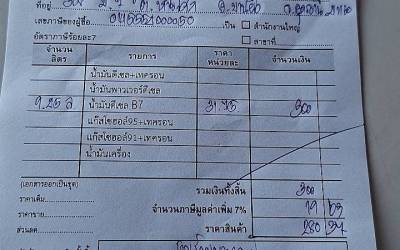 ที่อยู่
เลขภาษีของผู้ซื้อ 0115551000050 เป็น สำนักงานใหญ่
อัตราภาษีร้อยละ7 สาขาที่
จำนวนลิตร รายการ ราคาหน่วยละ จำนวนเงิน
น้ำมันดีเซล+เทครอน
น้ำมันพาวเวอร์ดีเซล
น้ำมันดีเซล B7 300
แก๊สโซฮอล์95+เทครอน
แก๊สโซฮอล์91+เทครอน
น้ำมันเครื่อง
(เอกสารออกเป็นชุด) รวมเงินทั้งสิ้น 300
ราคาเดิม จำนวนภาษีมูลค่าเพิ่ม 7% 19 63
ราคาขาย
ส่วนลด ราคาสินค้า 280 37